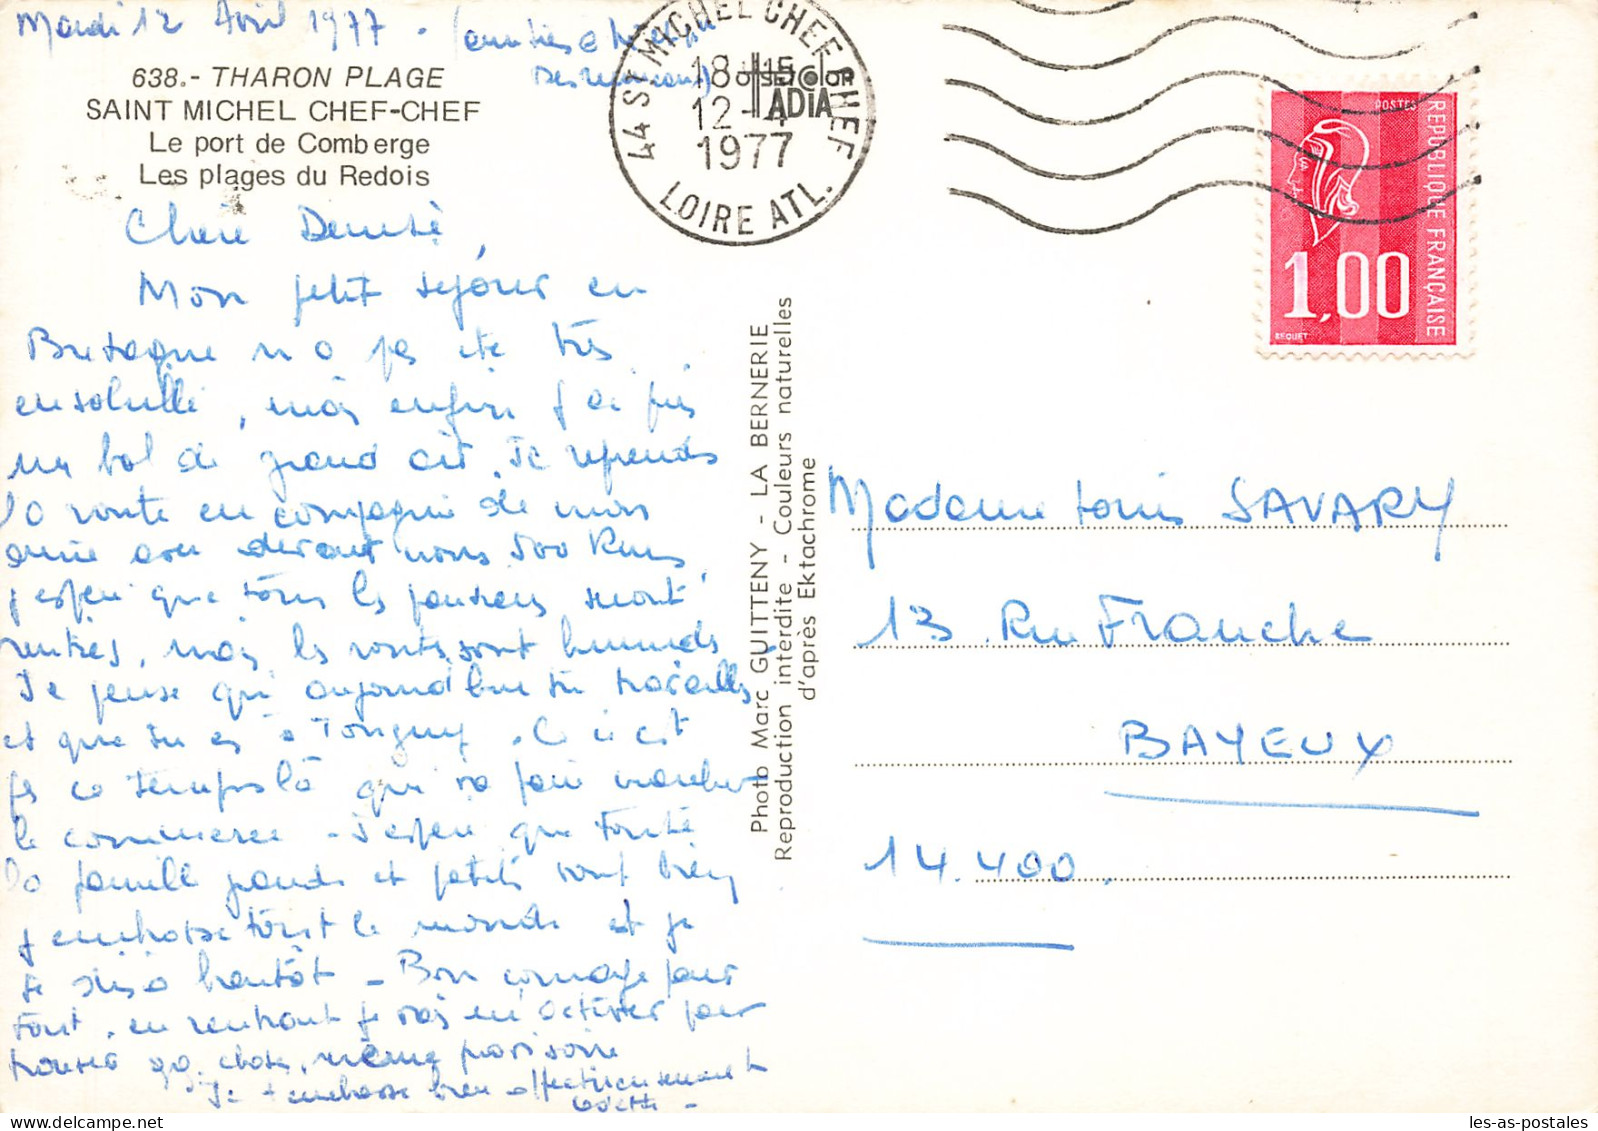 Mardi 12 Avril 1977 -
638.- THARON PLAGE
SAINT MICHEL CHEF-CHEF
Le port de Comberge
Les plages du Redois
Chère Denise,
Mon petit séjour en
Bretagne n'a pas été très
ensoleillé, mais enfin j'ai pris
un bol de grand air. Je reprends
la route en compagnie de mon
amie avec devant nous 500 Kms,
j'espère que tous les
rentrés, mais les routes sont humides
Je pense qu'aujourd'hui tu travailles
et que tu es à Torigny. Ce n'est
pas ce temps là qui va faire marcher
le commerce - J'espère que toute
la famille grands et petits sont bien
j'embrasse tout le monde et je
te dis à bientôt - Bon courage pour
tout, en rentrant je vais m'activer pour
trouver qq. chose, même provisoire
Je t'embrasse bien affectueusement
Odette -
44 ST MICHEL CHEF CHEF
18 H 15
12 - 4
1977
LOIRE ATL.
OFSETCOLOR
ADIA
Photo Marc GUITTENY - LA BERNERIE
Reproduction interdite - Couleurs naturelles
d'après Ektachrome
POSTES
REPUBLIQUE FRANÇAISE
1,00
BEQUET
Madame Louis SAVARY
13 Rue Franche
BAYEUX
14.400.
les-as-postales